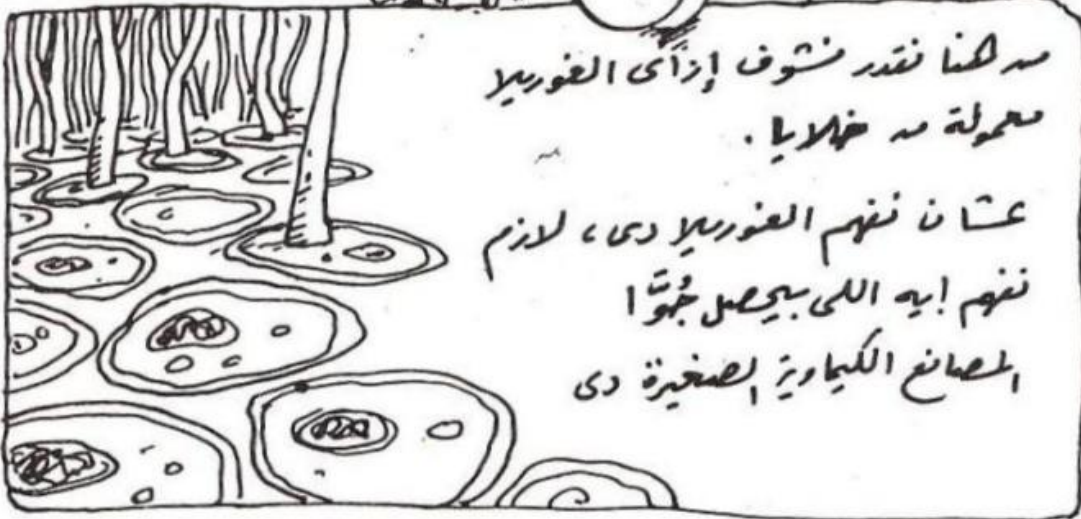 من هنا نقدر نشوف إزاى الغوريلا
معمولة من خلايا.
عشان نفهم الغوريلا دى، لازم
نفهم إيه اللى بيحصل جُوَّا
المصانع الكيماوية الصغيرة دى